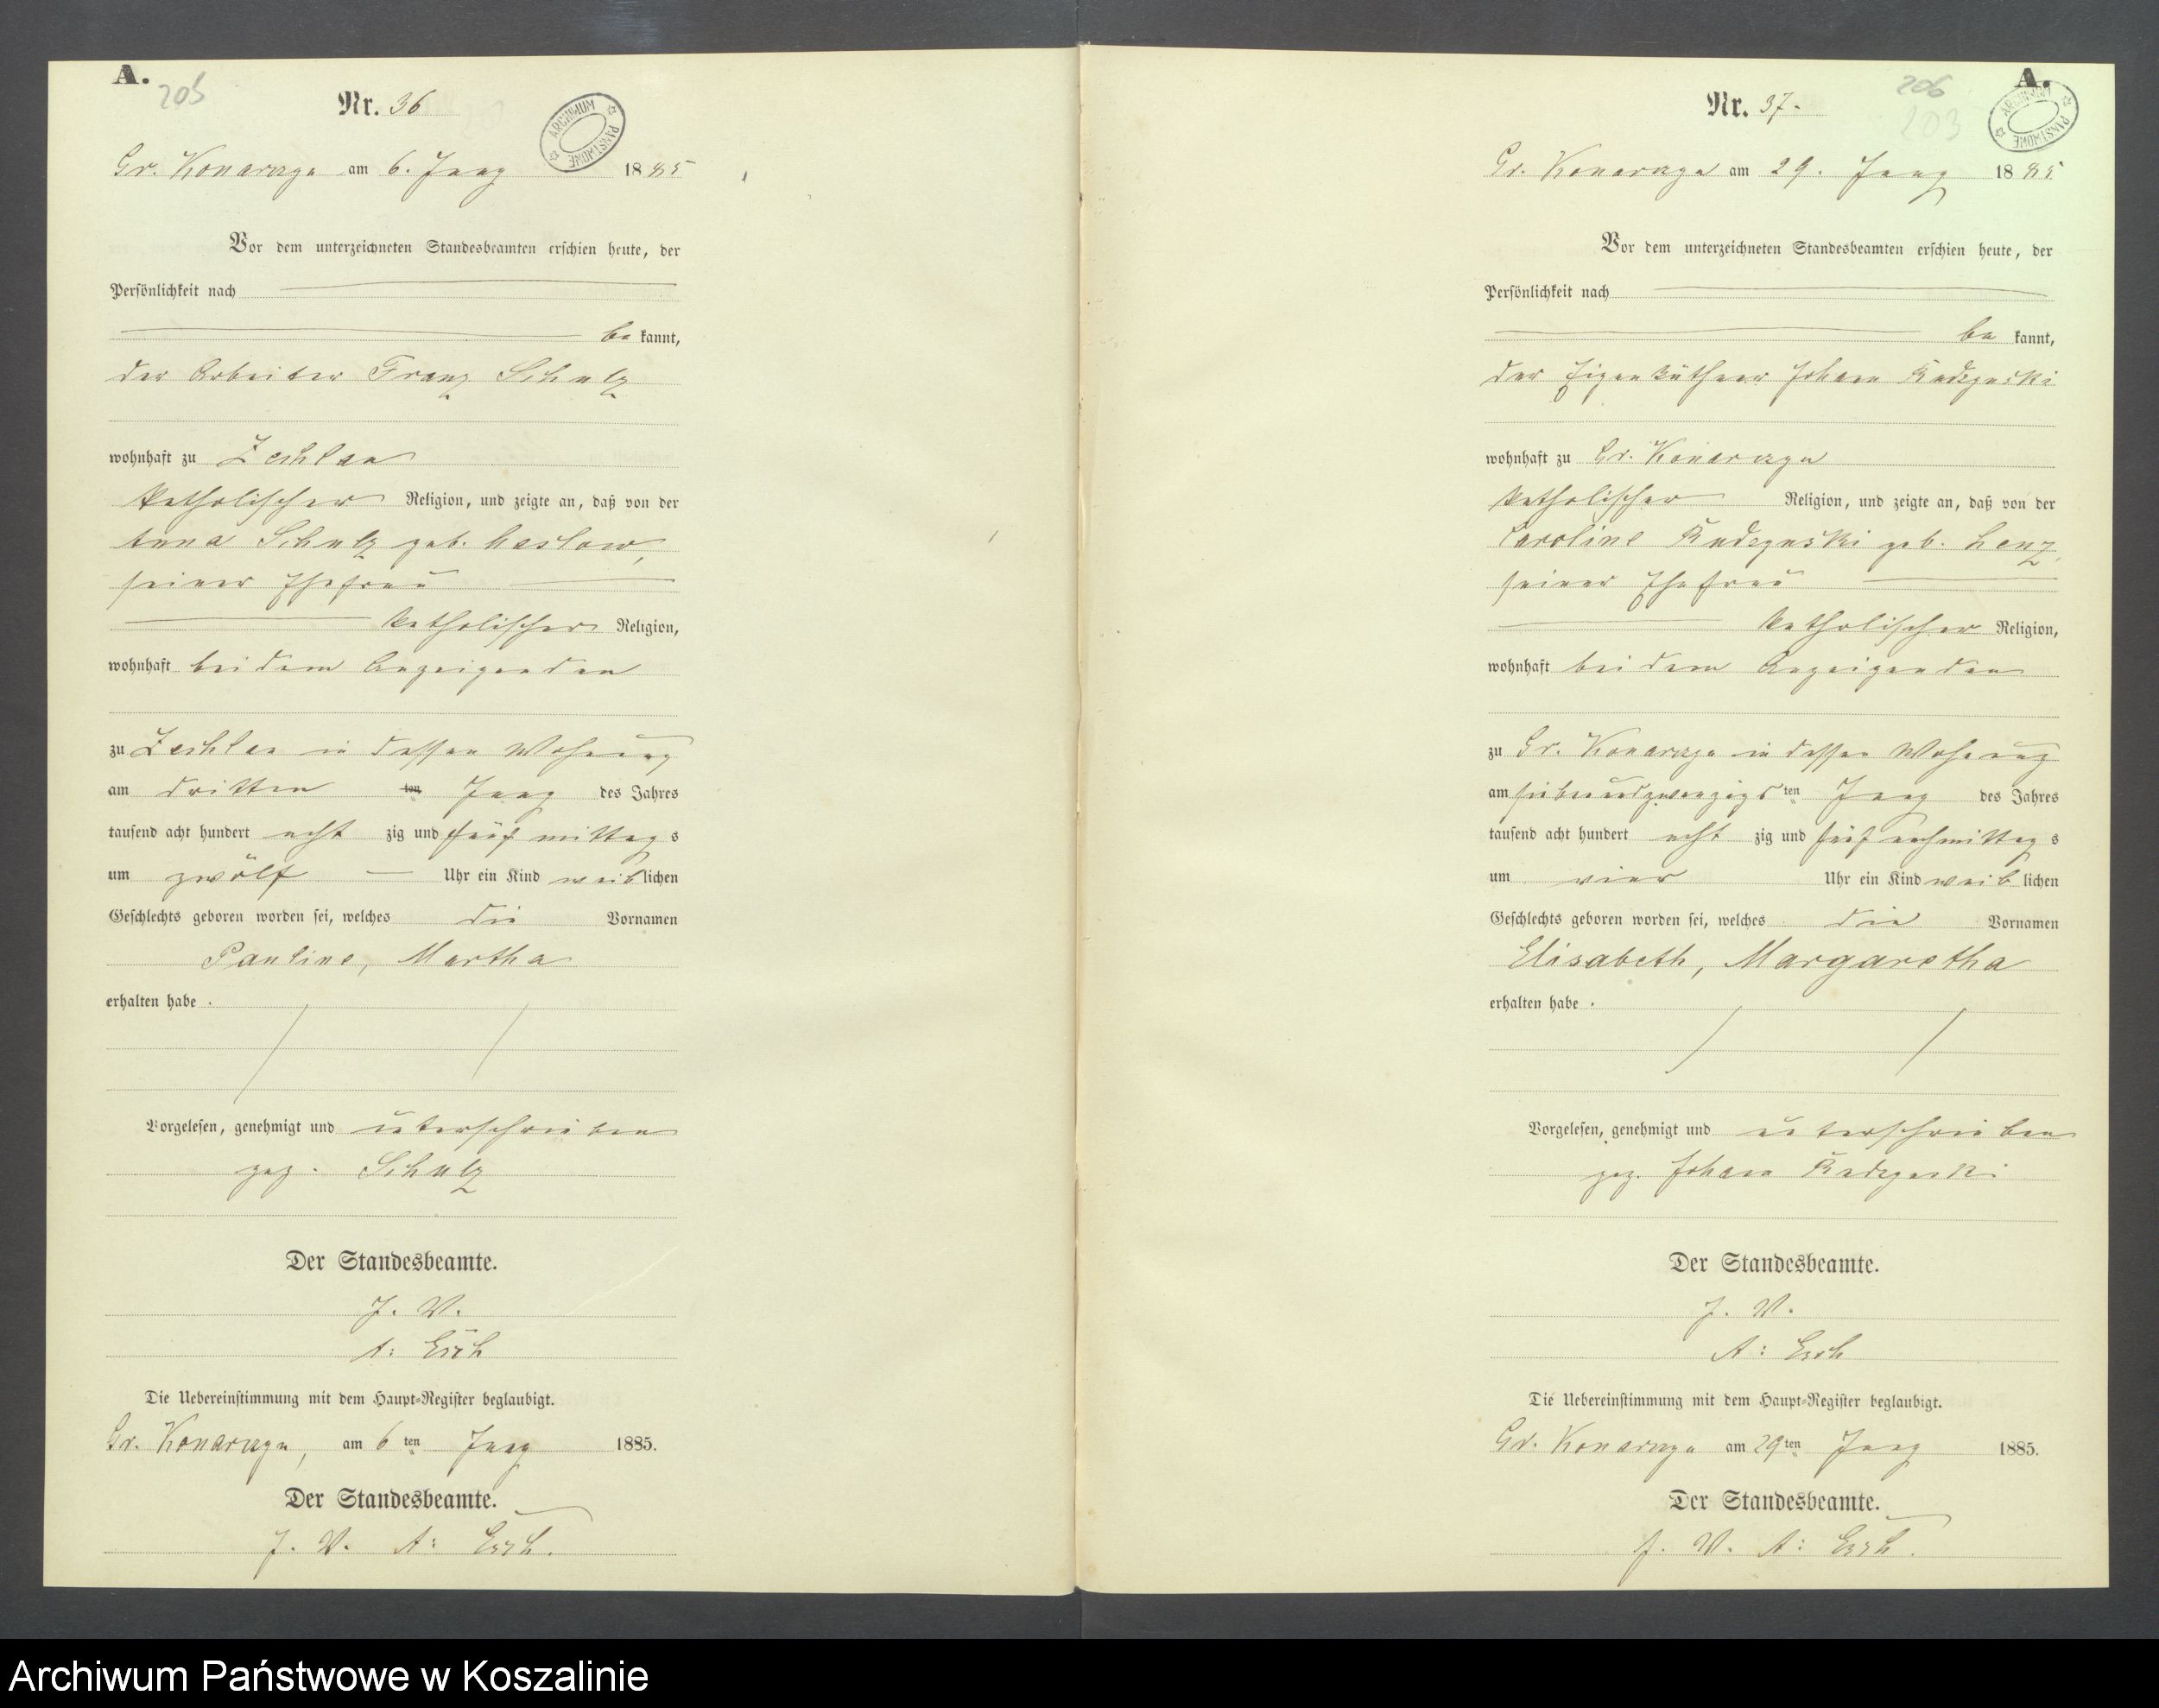 A.
205
Nr. 36
ARCHIWUM PAŃSTWOWE
Gr. Konarczyn am 6. Juny 1885
Vor dem unterzeichneten Standesbeamten erschien heute, der
Persönlichkeit nach
be kannt,
der Arbeiter Franz Schulz
wohnhaft zu Zechlau
katholischer Religion, und zeigte an, daß von der
Anna Schulz geb. Maslow,
seiner Ehefrau
katholischer Religion,
wohnhaft bei dem Anzeigenden
zu Zechlau in dessen Wohnung
am dritten ten Juny des Jahres
tausend acht hundert acht zig und fünf mittag s
um zwölf Uhr ein Kind weib lichen
Geschlechts geboren worden sei, welches die Vornamen
Pauline, Martha
erhalten habe .
Vorgelesen, genehmigt und unterschrieben
gez. Schulz
Der Standesbeamte.
J. V.
A: Esch
Die Uebereinstimmung mit dem Haupt-Register beglaubigt.
Gr. Konarczyn, am 6 ten Juny 1885.
Der Standesbeamte.
J. V. A: Esch.
A.
206
203
Nr. 37.
ARCHIWUM PAŃSTWOWE
Gr. Konarczyn am 29. Juny 1885
Vor dem unterzeichneten Standesbeamten erschien heute, der
Persönlichkeit nach
be kannt,
der Eigenkäthner Johann
wohnhaft zu Gr. Konarczyn
katholischer Religion, und zeigte an, daß von der
Caroline geb. Lenz,
seiner Ehefrau
katholischer Religion,
wohnhaft bei dem Anzeigenden
zu Gr. Konarczyn in dessen Wohnung
am siebenundzwanzigs ten Juny des Jahres
tausend acht hundert acht zig und fünf nachmittag s
um vier Uhr ein Kind weib lichen
Geschlechts geboren worden sei, welches die Vornamen
Elisabeth, Margaretha
erhalten habe .
Vorgelesen, genehmigt und unterschrieben
gez. Johann
Der Standesbeamte.
J. V.
A: Esch
Die Uebereinstimmung mit dem Haupt-Register beglaubigt.
Gr. Konarczyn am 29 ten Juny 1885.
Der Standesbeamte.
J. V. A: Esch.
Archiwum Państwowe w Koszalinie